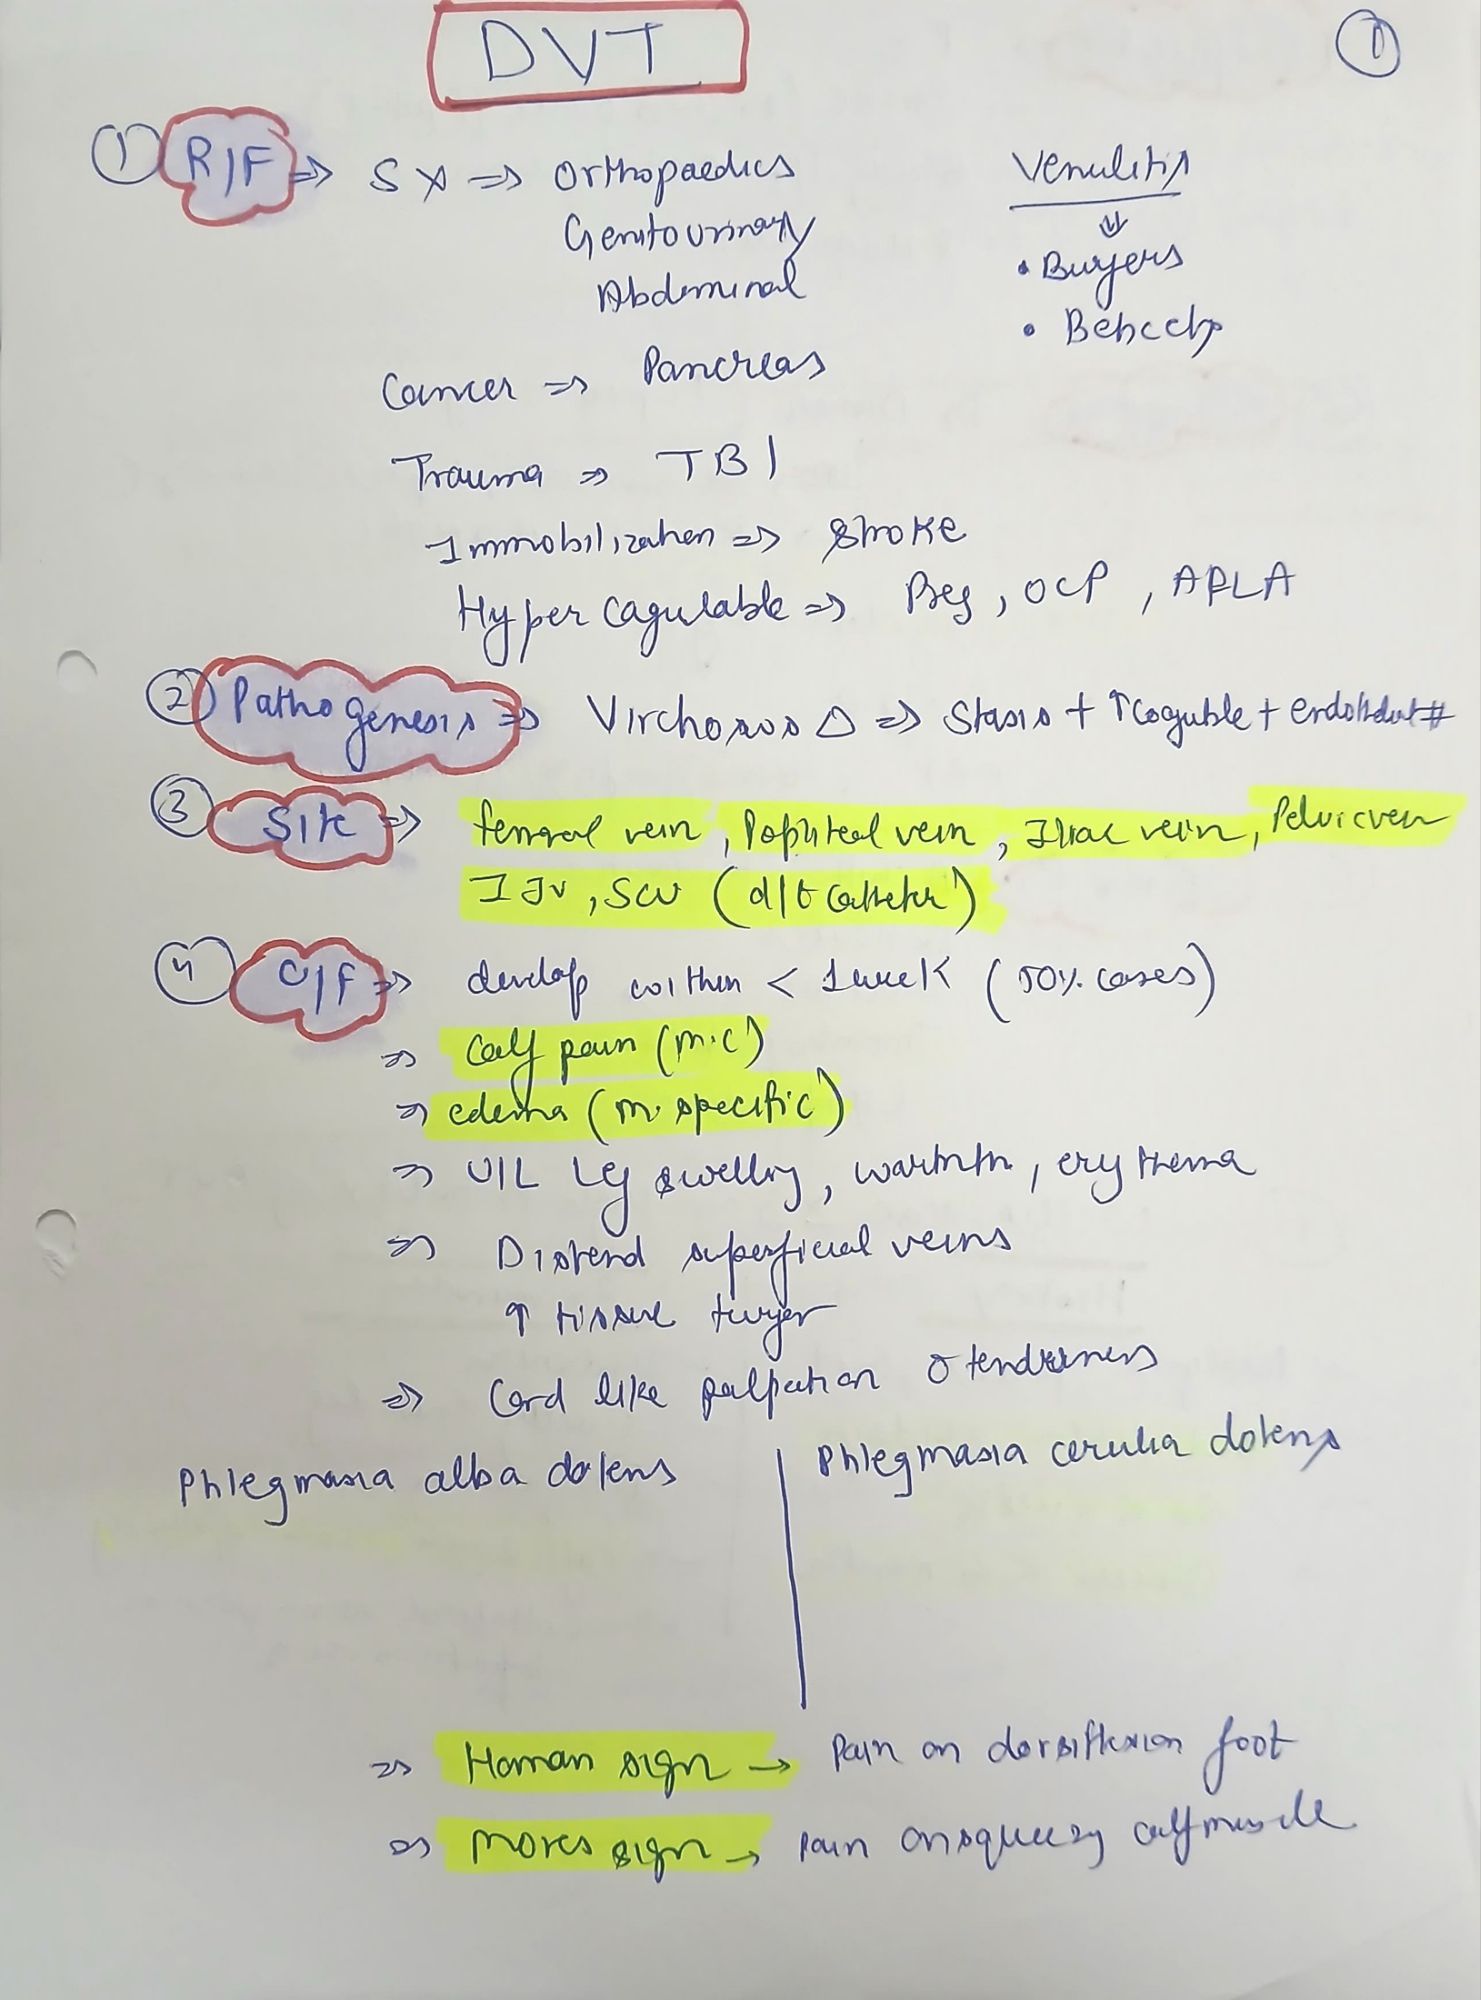 DVT
1
1 R/F ⇒ Sx ⇒ Orthopaedics
Genitourinary
Abdominal
Venulitis
⇓
• Burgers
• Behcets
Cancer ⇒ Pancreas
Trauma ⇒ TBI
Immobilization ⇒ Stroke
Hyper cagulable ⇒ Preg, OCP, APLA
2 Pathogenesis ⇒ Virchows Δ ⇒ Stasis + ↑ + #
3 Site ⇒ femoral vein, Popliteal vein, Iliac vein, Pelvic vein
IJV, SCV (d/t catheter)
4 C/F ⇒ develop within < 1 week (50% cases)
⇒ Calf pain (m.c)
⇒ edema (m. specific)
⇒ U/L Leg swelling, warmth, erythema
⇒ Distend superficial veins
↑ tissue turger
⇒ Cord like palpation tenderness
Phlegmasia alba dolens
Phlegmasia cerulia dolens
⇒ Homan sign → Pain on dorsiflexion foot
⇒ Moses sign → Pain on squeezing calf muscle